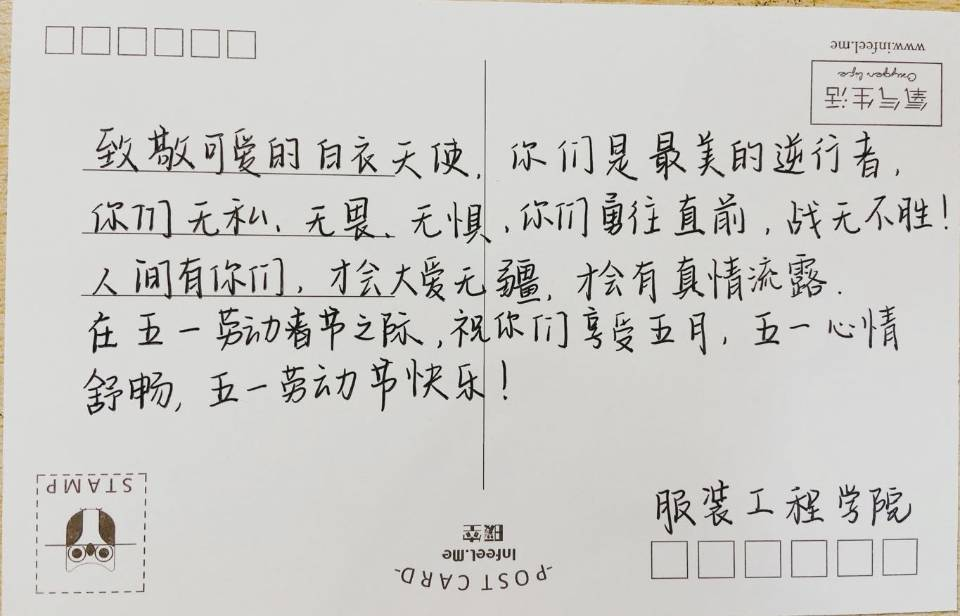 www.infeel.me
氧气生活
Oxygen life
致敬可爱的白衣天使,你们是最美的逆行者,
你们无私、无畏、无惧,你们勇往直前,战无不胜!
人间有你们,才会大爱无疆,才会有真情流露.
在五一劳动者节之际,祝你们享受五月,五一心情
舒畅,五一劳动节快乐!
STAMP
服装工程学院
暖空
Infeel.Me
-POST CARD-